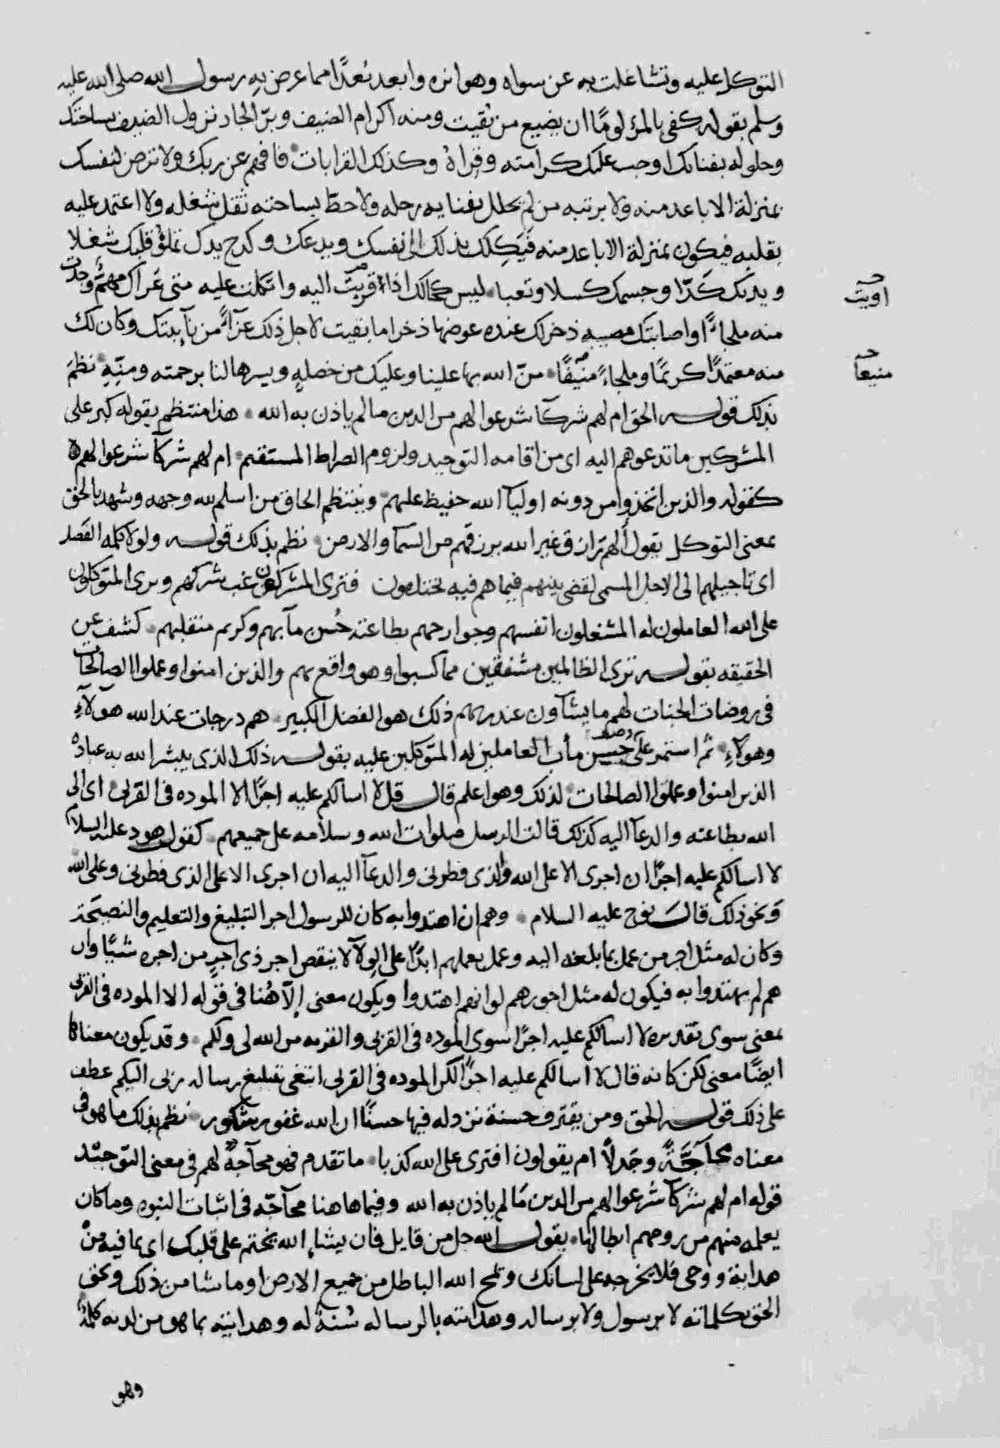 التوكل عليه وتشاغلت به عن سواه وهوانزه وابعد بُعدًا مما عرض به رسول الله صلى الله عليه
وسلم بقوله كفى بالمرء لومًا ان يضيع من يقيت ومنه اكرام الضيف وبرّ الجار نزول الضيف بساحتك
وحلوله بفنائك اوجب عليك كرامته وقراهُ وكذلك القرابات فافهم عن ربك ولا ترض لنفسك
بمنزلة الاباعد منه ولا برتبه من لم يحلل بفنايه رحله ولا حطّ بساحته ثقل شغله ولا اعتمد عليه
بقلبه فيكون بمنزلة الاباعد منه فيَكِلك بذلك الى نفسك ويدعك وكدح يدك تملؤ قلبك شغلا
وبدنك كدّا وجسمك كسلا وتعبا ليس كحالك اذا قربت اليه واتكلت عليه متى عَراك مهمّ وجدت
اويت
منه ملجاءً او اصابتك مصيبه ذخر لك عنده عوضها ذخرا ما بقيت لاجل ذلك عزآءً من نآيبتك وكان لك
منه معتمدًا كريمًا وملجاءً مُنيفًا منّ الله بها علينا وعليك من خصله ويسرها لنا برحمته ومنّه نظم
منيعا
بذلك قوله الحق ام لهم شركآ شرعوا لهم من الدين ما لم ياذن به الله هذا منتظم بقوله كبر على
المشركين ما تدعوهم اليه اى من اقامه التوحيد ولزوم الصراط المستقيم ام لهم شركآ شرعوا لهم
كقوله والذين اتخذوا من دونه اوليآ الله حفيظ عليهم وينتظم الحاق من اسلم لله وجهه وشهد بالحق
بمعنى التوكل يقول ألهم رازق غير الله يرزقهم من السمآ والارض نظم بذلك قوله ولولا كلمه الفصل
اى تاجيلهم الى الاجل المسمى لقضى بينهم فيما هم فيه يختلفون فترى المشركون غب شركهم ويرى المتوكلون
على الله العاملون له المشغلون انفسهم وجوارحهم بطاعته حُسن مآبهم وكريم منقلبهم كشف عن
الحقيقه بقوله ترى الظالمين مشفقين مما كسبوا وهو واقع بهم والذين امنوا وعملوا الصالحات
فى روضات الجنات لهم ما يشآون عند ربهم ذلك هو الفضل الكبير هم درجات عند الله هولآءِ
وهولاءِ ثم استمر على حسن مأب العاملين له المتوكلين عليه بقوله ذلك الذى يبشر الله به عباده
الذين امنوا وعملوا الصالحات لذلك وهو اعلم قال قل لا اسالكم عليه اجرًا الا الموده فى القربى اى الى
الله بطاعته والدعآ اليه كذلك قالت الرسل صلوات الله وسلامه على جميعهم كقول هود عليه السلام
لا اسالكم عليه اجرًا ان اجرى الا على الله والذى فطرنى والدعآ اليه ان اجرى الا على الذى فطرنى وعلى الله
ونحو ذلك قال نوح عليه السلام وهم ان اهتدوا به كان للرسول اجر التبليغ والتعليم والنصيحة
وكان له مثل اجر من عمل بما بلغه اليه وعمل بعملهم ابدًا على الولآ لا ينقص اجر ذى اجر من اجره شيًا وان
هم لم يهتدوا به فيكون له مثل اجورهم لو انهم اهتدوا ويكون معنى إلّا هُنا فى قوله الا الموده فى القربى
بمعنى سوى تقديره لا اسالكم عليه اجرًا سوى الموده فى القربى والقربه من الله لى ولكم وقد يكون معناها
ايضًا معنى لكن كانه قال لا اسالكم عليه اجرًا لكن الموده فى القربى ابتغى تبليغ رساله ربى اليكم عطف
على ذلك قوله الحق ومن يقترف حسنة نزد له فيها حسنًا ان الله غفور شكور نظم بذلك ما هو فى
معناه محآجّة وجدلًا ام يقولون افترى على الله كذبا ما تقدم فهو محآجة لهم فى معنى التوحيد
قوله ام لهم شركآ شرعوا لهم من الدين ما لم ياذن به الله وفيما هاهنا محآجّه فى اثبات النبوه وما كان
يعلمه منهم من رومهم ابطالها يقول الله جل من قايل فان يشاءِ الله يختم على قلبك اى بما فيه من
هداية ووحى فلا يخرجه على لسانك ويمح الله الباطل من جميع الارض او ما شا من ذلك ويحق
الحق بكلماته لا برسول ولا برساله وهدايته بالرساله سُنةٌ له وهدايته بما هو من لدنه كلمةٌ
وهو